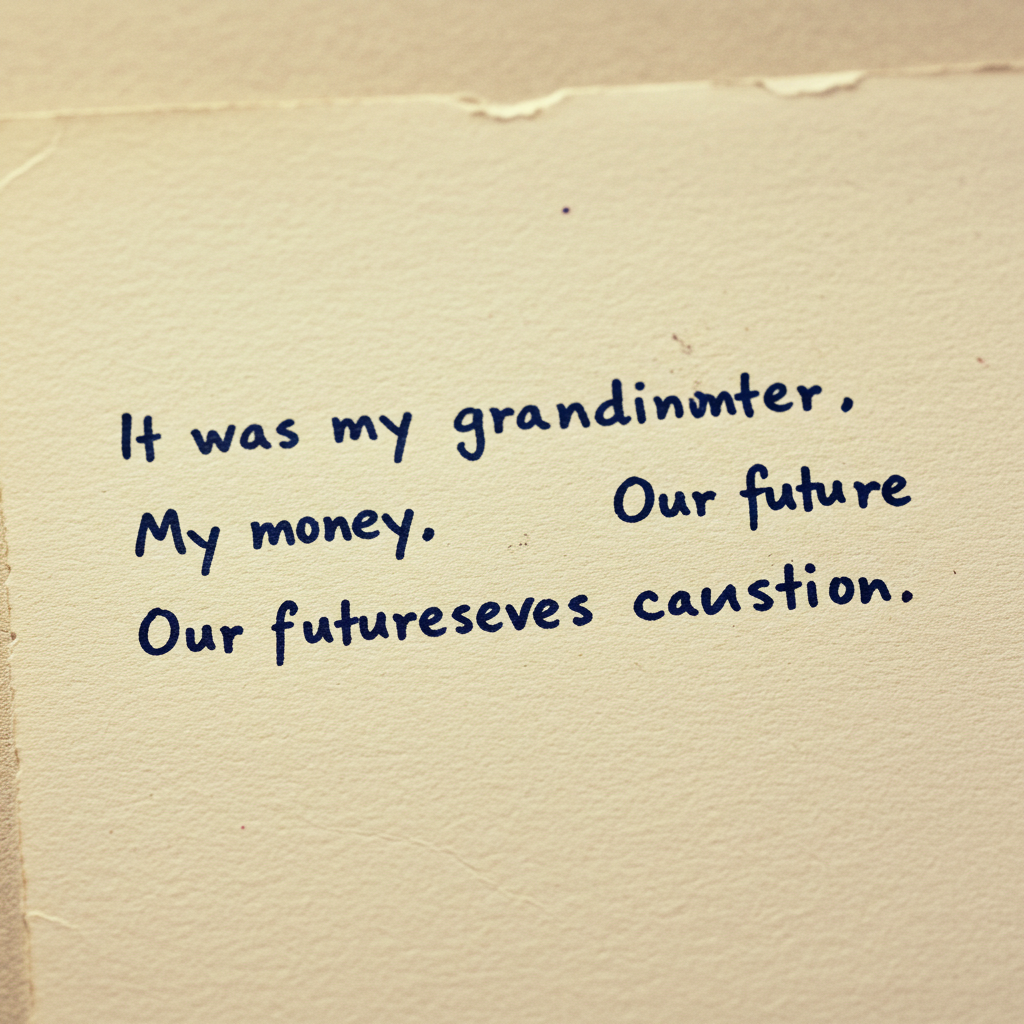 It was my grandinomter.
My money. Our future
Our futureseves caustion.